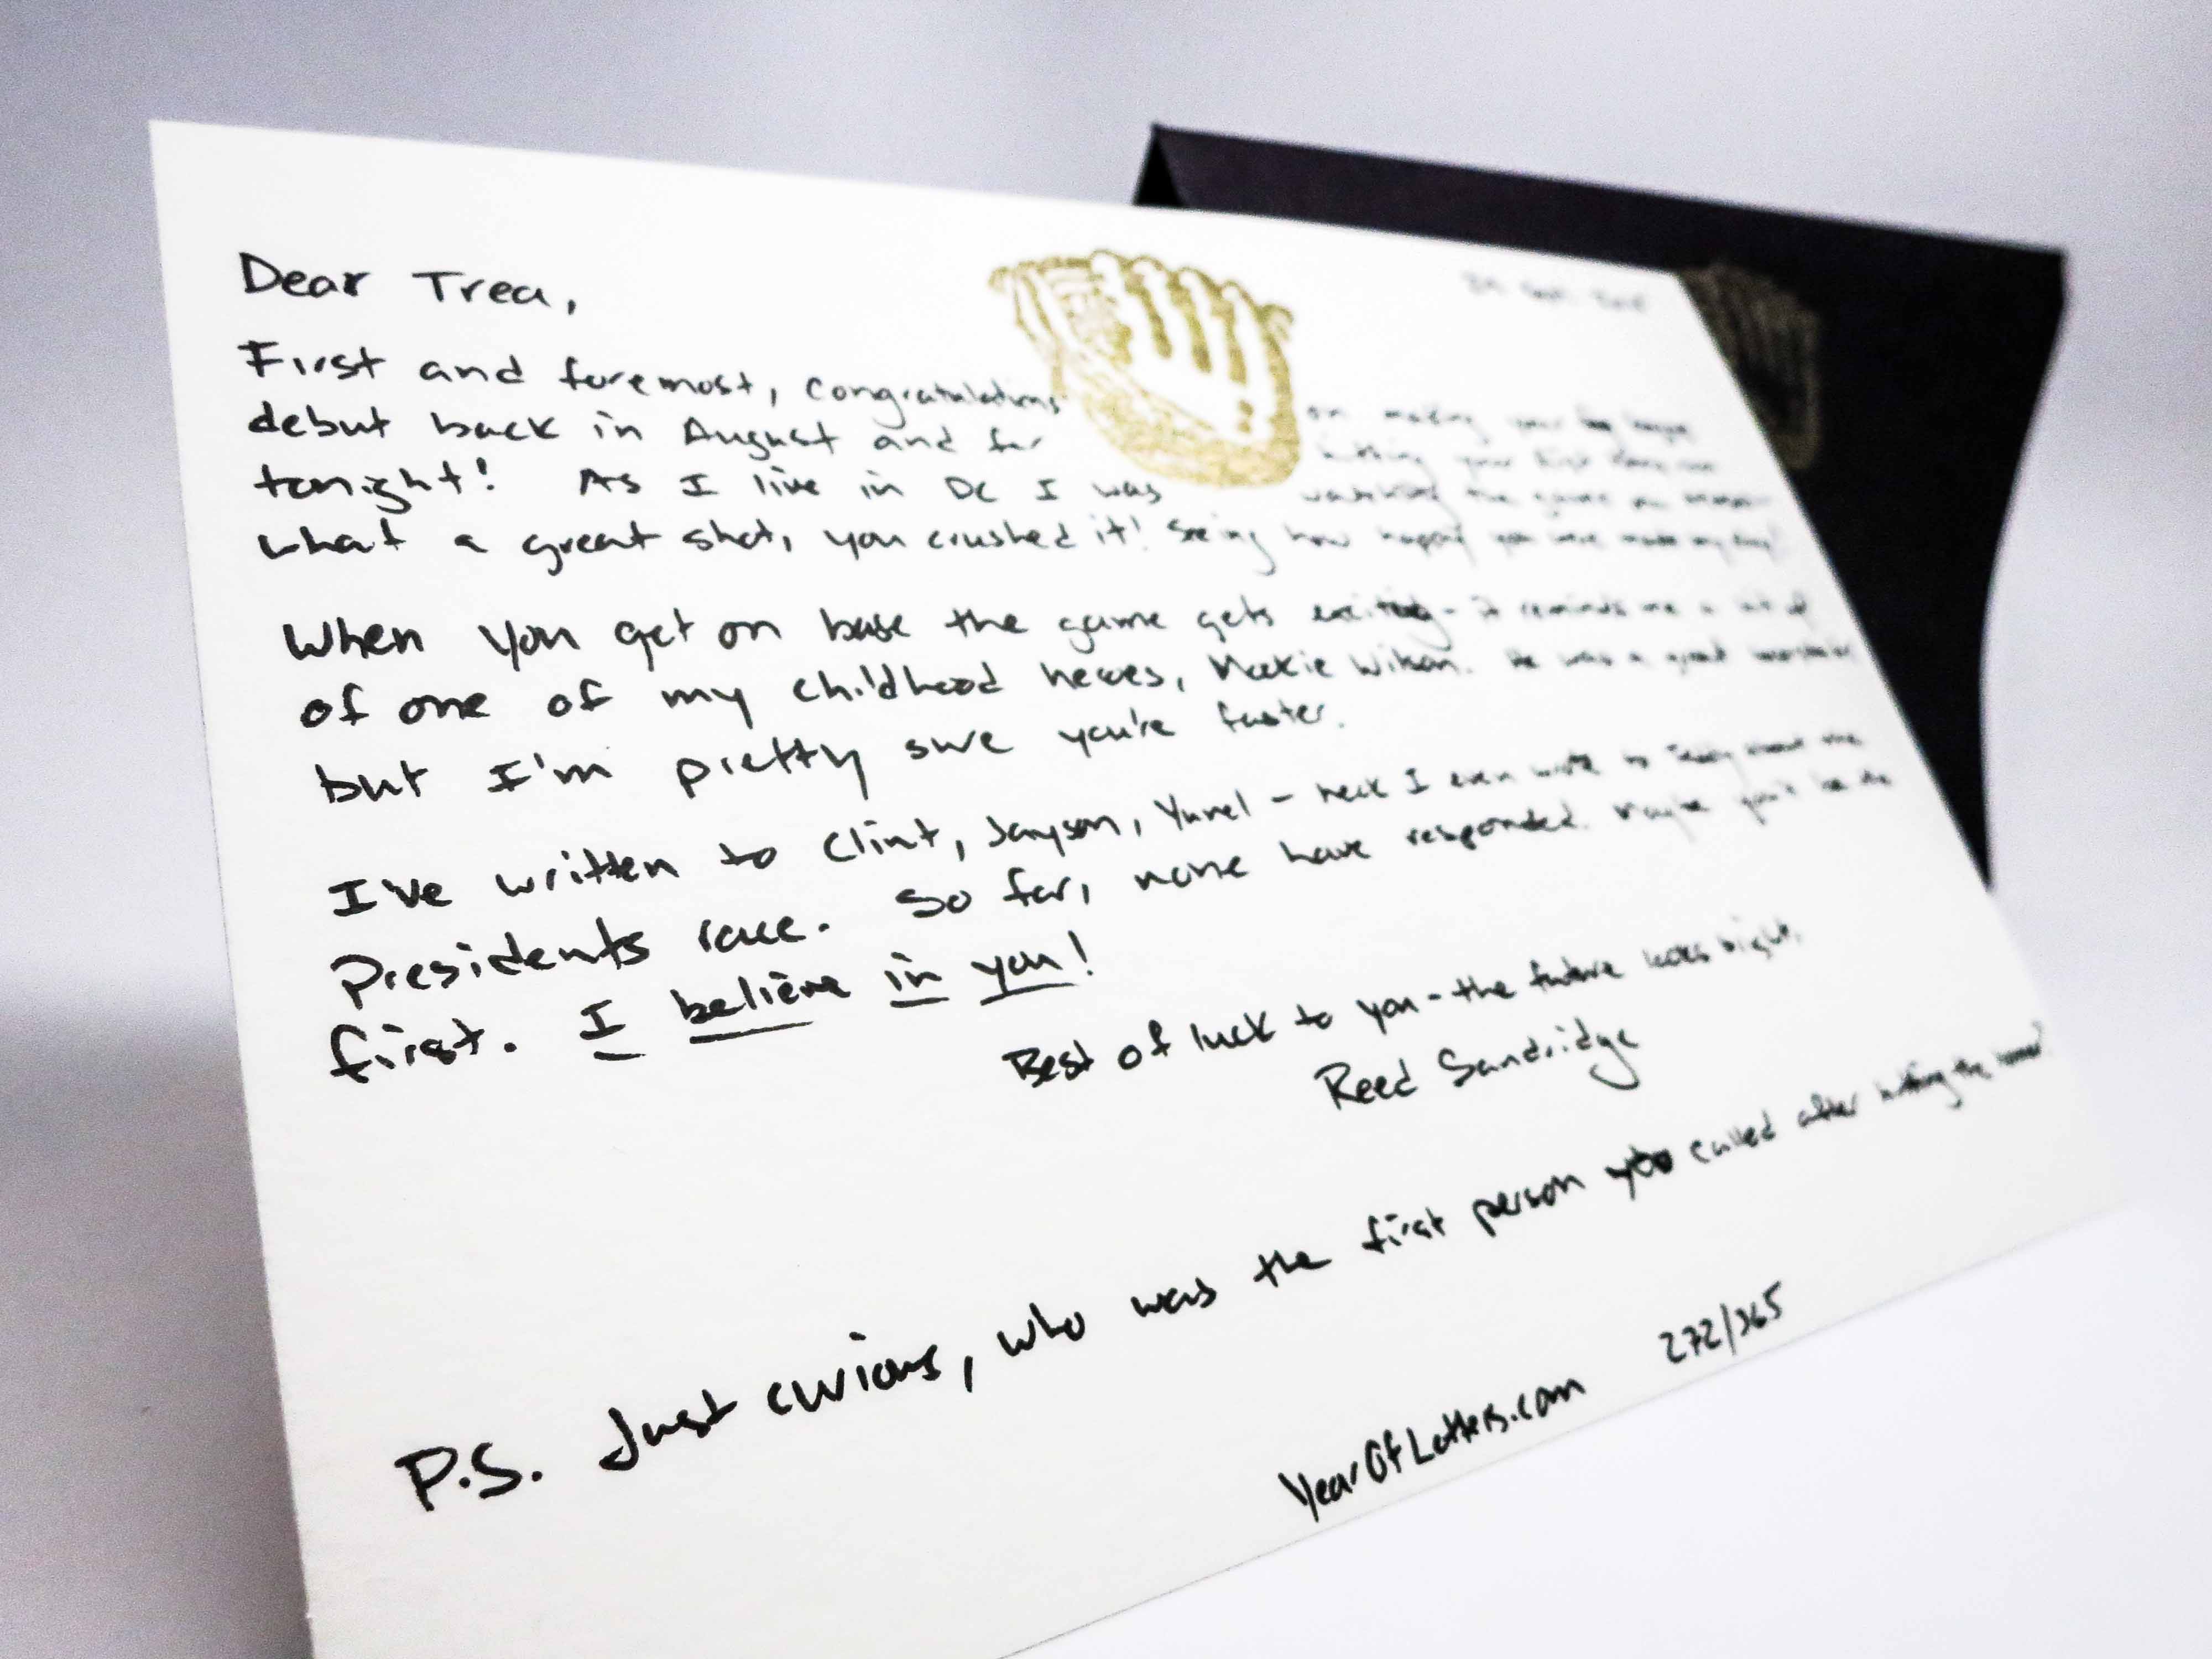 29 Sept. 2015
Dear Trea,
First and foremost, congratulations on making your big league
debut back in August and for hitting your first home run
tonight! As I live in DC I was watching the game on
what a great shot, you crushed it! Seeing how happy you were made my day!
When you get on base the game gets exciting - it reminds me a lot of
of one of my childhood heroes, Mookie Wilson. He was a great
but I'm pretty sure you're faster.
I've written to Clint, Jayson, Yunel - heck I even wrote to Teddy about the
Presidents race. So far, none have responded. Maybe you'll be the
first. I believe in you!
Best of luck to you - the future looks bright.
Reed Sandridge
P.S. Just curious, who was the first person you called after hitting the homer?
YearOfLetters.com 272/365